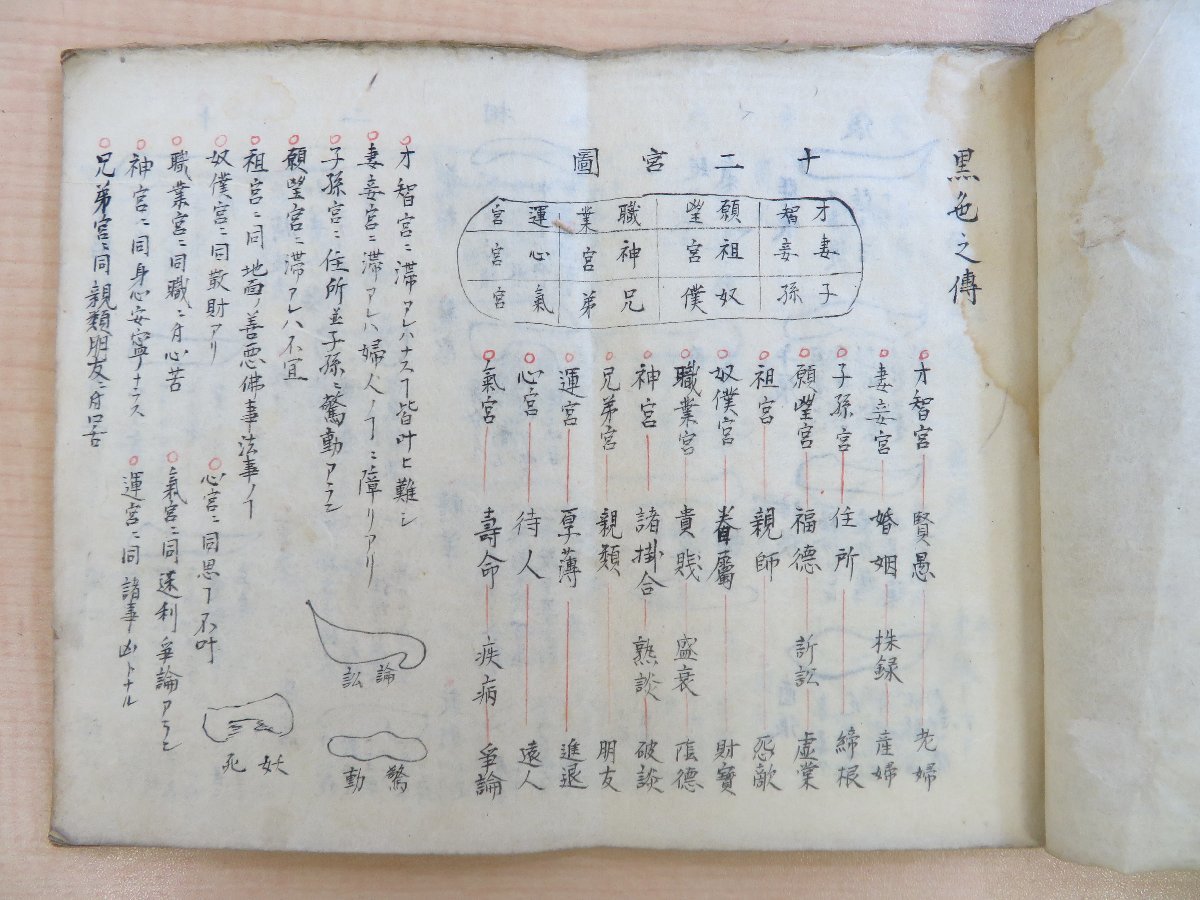 黒色之傳
十二宮圖
才智 願望 職業 運宮
妻妾 祖宮 神宮 心宮
子孫 奴僕 兄弟 氣宮
才智宮 賢愚 老婦
妻妾宮 婚姻 株録 産婦
子孫宮 住所 締根
願望宮 福徳 訴訟 虚業
祖宮 親師 怨敵
奴僕宮 眷屬 財寶
職業宮 貴賎 盛衰 陰徳
神宮 諸掛合 熟談 破談
兄弟宮 親類 朋友
運宮 厚薄 進退
心宮 待人 遠人
氣宮 壽命 疾病 爭論
才智宮ニ滞アレハナスヿ皆叶ヒ難シ
妻妾宮ニ滞アレハ婦人ノヿニ障リアリ
子孫宮ニ住所並子孫ニ驚動アラン
願望宮ニ滞アレハ不宜
祖宮ニ同地面ノ善悪佛事法事ノヿ
奴僕宮ニ同散財アリ
職業宮ニ同職ニ付心苦
神宮ニ同身心安寧ナラス
兄弟宮ニ同親類朋友ニ付苦
心宮ニ同思ヿ不叶
氣宮ニ同遂利爭論アラン
運宮ニ同諸事凶トナル
論訟
驚動
妖死